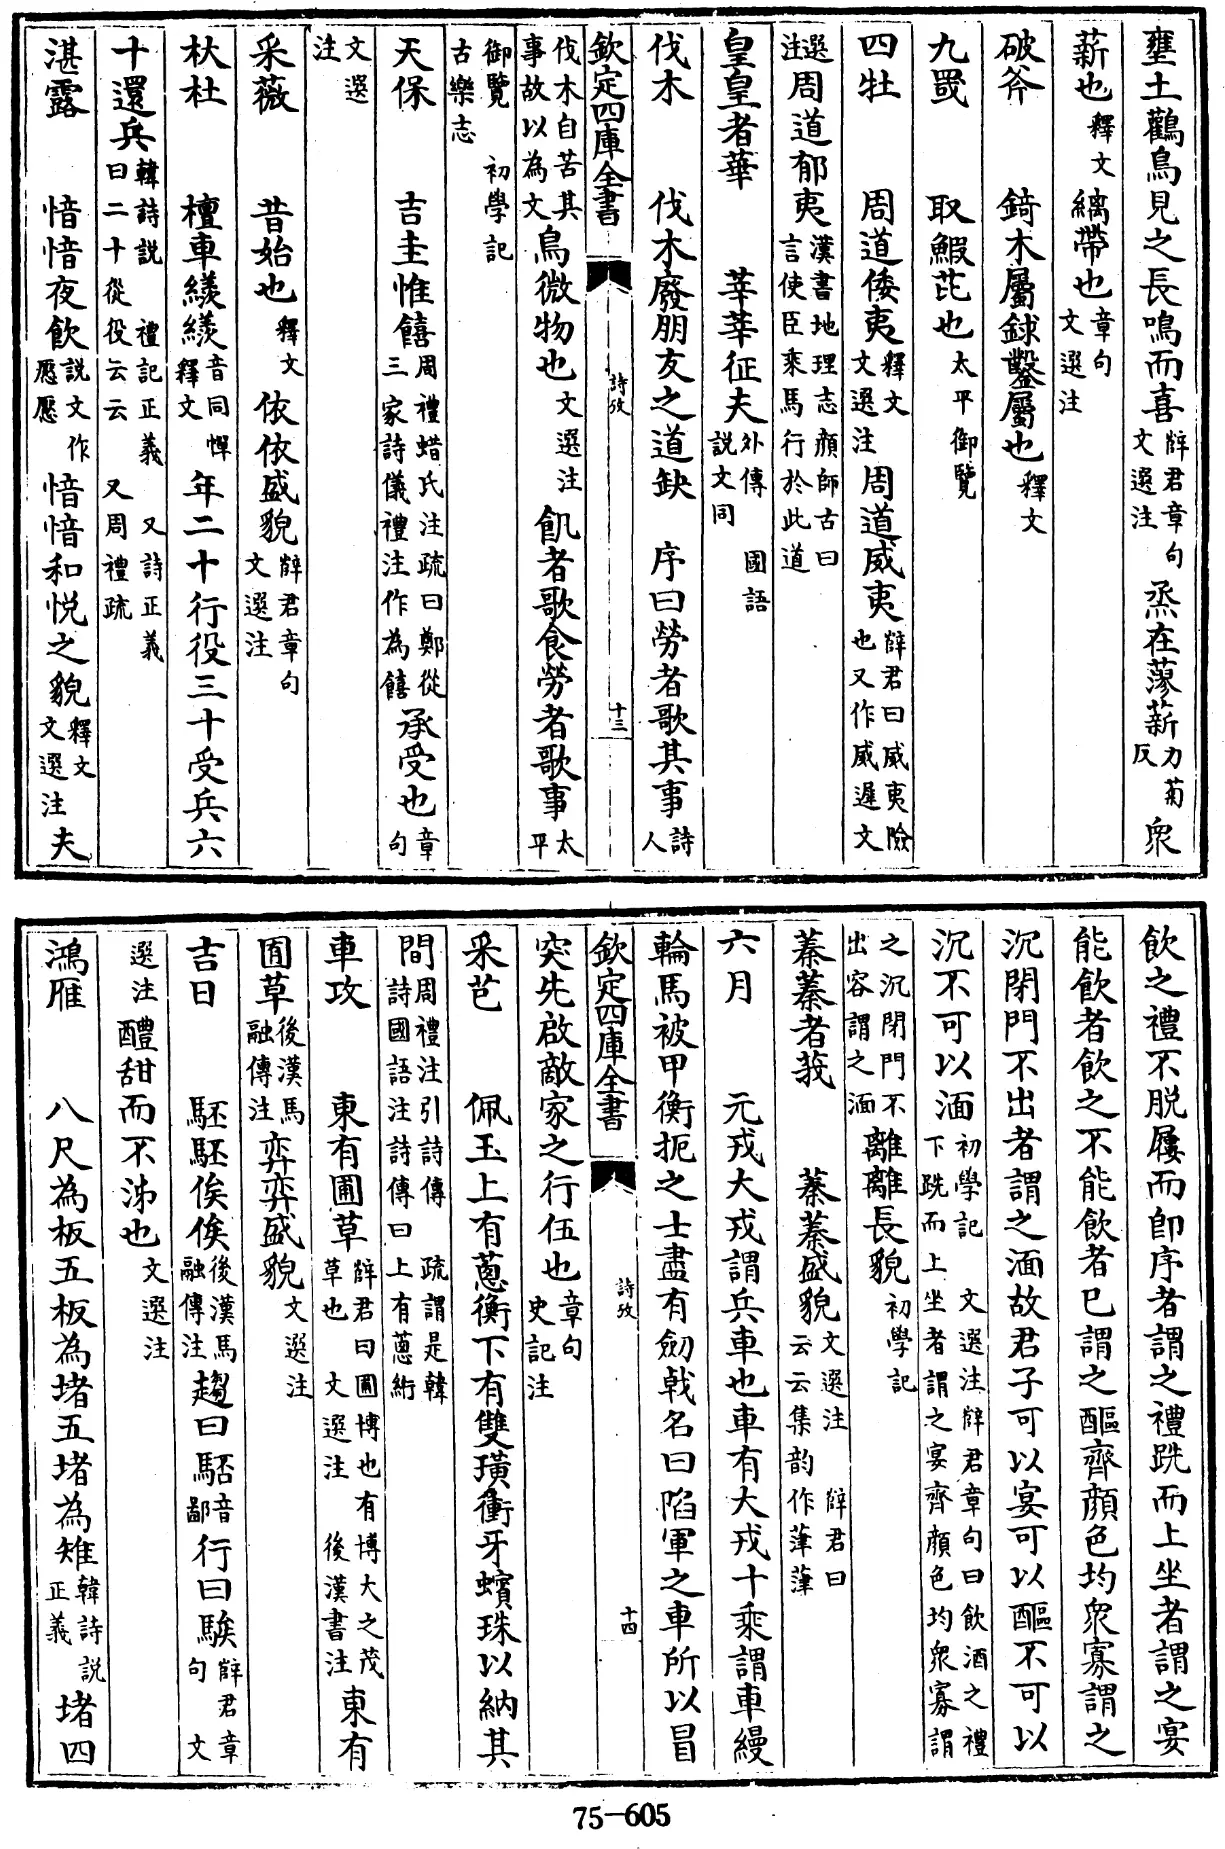 壅土鸛鳥見之長鳴而喜薛君章句文選注烝在蓼薪力菊反衆
薪也釋文縭帶也章句文選注
破斧 錡木屬銶鑿屬也釋文
九罭 取鰕芘也太平御覽
四牡 周道倭夷釋文文選注周道威夷薛君曰威夷險也又作威遲文
選注周道郁夷漢書地理志顔師古曰言使臣乘馬行於此道
皇皇者華 莘莘征夫外傳國語說文同
伐木 伐木廢朋友之道缺 序曰勞者歌其事詩人
欽定四庫全書 詩攷 十三
伐木自苦其事故以為文鳥微物也文選注飢者歌食勞者歌事太平
御覽初學記古樂志
天保 吉圭惟饎周禮蜡氏注疏曰鄭從三家詩儀禮注作為饎承受也章句
文選注
采薇 昔始也釋文依依盛貌薛君章句文選注
杕杜 檀車繎繎音同幝釋文年二十行役三十受兵六
十還兵韓詩說禮記正義又詩正義曰二十從役云云又周禮疏
湛露 愔愔夜飲說文作懕懕愔愔和悅之貌釋文文選注夫
飲之禮不脫屨而即序者謂之禮跣而上坐者謂之宴
能飲者飲之不能飲者已謂之醧齊顔色均衆寡謂之
沉閉門不出者謂之湎故君子可以宴可以醧不可以
沉不可以湎初學記文選注薛君章句曰飲酒之禮下跣而上坐者謂之宴齊顔色均衆寡謂
之沉閉門不出客謂之湎離離長貌初學記
蓁蓁者莪 蓁蓁盛貌文選注薛君曰云云集韵作䔈䔈
六月 元戎大戎謂兵車也車有大戎十乘謂車縵
輪馬被甲衡扼之士盡有劒戟名曰陷軍之車所以冒
欽定四庫全書 詩攷 十四
突先啟敵家之行伍也章句史記注
采芑 佩玉上有蔥衡下有雙璜衝牙蠙珠以納其
間周禮注引詩傳疏謂是韓詩國語注詩傳曰上有蔥絎
車攻 東有圃草薛君曰圃博也有博大之茂草也文選注後漢書注東有
囿草後漢馬融傳注弈弈盛貌文選注
吉日 駓駓俟俟後漢馬融傳注趨曰駓音鄙行曰騃薛君章句文
選注醴甜而不泲也文選注
鴻雁 八尺為板五板為堵五堵為雉韓詩說正義堵四
75-605